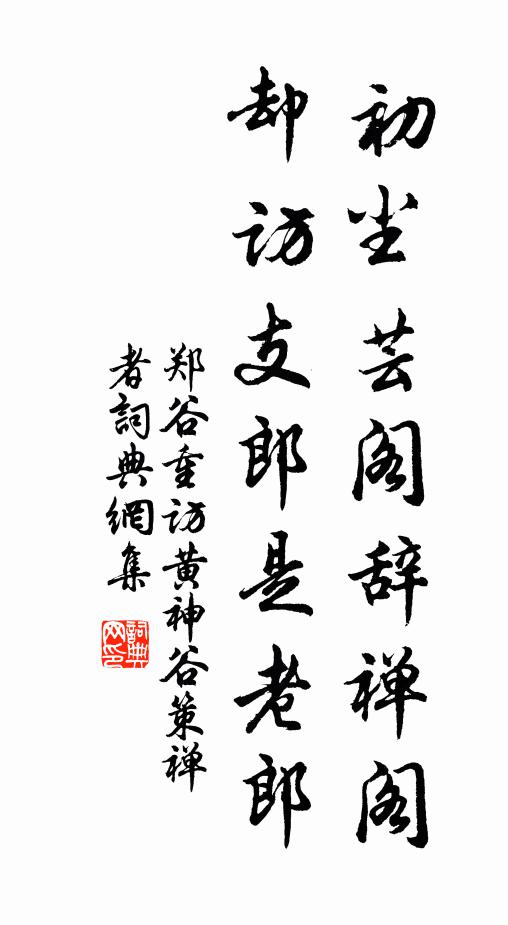 初尘芸阁辞禅阁
却访支郎是老郎
郑谷重访黄神谷策禅
者詞典網集
詞典
网印